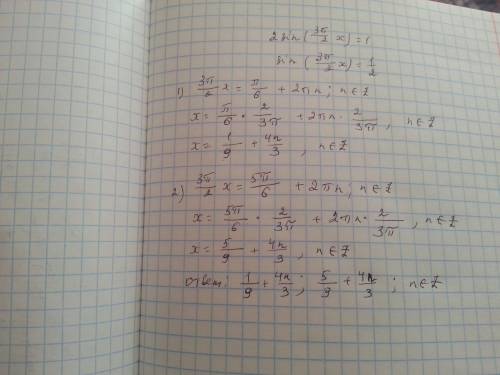 2 sin (3π/2 x) = 1
sin (3π/2 x) = 1/2
1) 3π/2 x = π/6 + 2πn; n∈Z
x = π/6 · 2/3π + 2πn · 2/3π, n∈Z
x = 1/9 + 4n/3, n∈Z
2) 3π/2 x = 5π/6 + 2πn; n∈Z
x = 5π/6 · 2/3π + 2πn · 2/3π, n∈Z
x = 5/9 + 4n/3, n∈Z
ответ: 1/9 + 4n/3; 5/9 + 4n/3; n∈Z